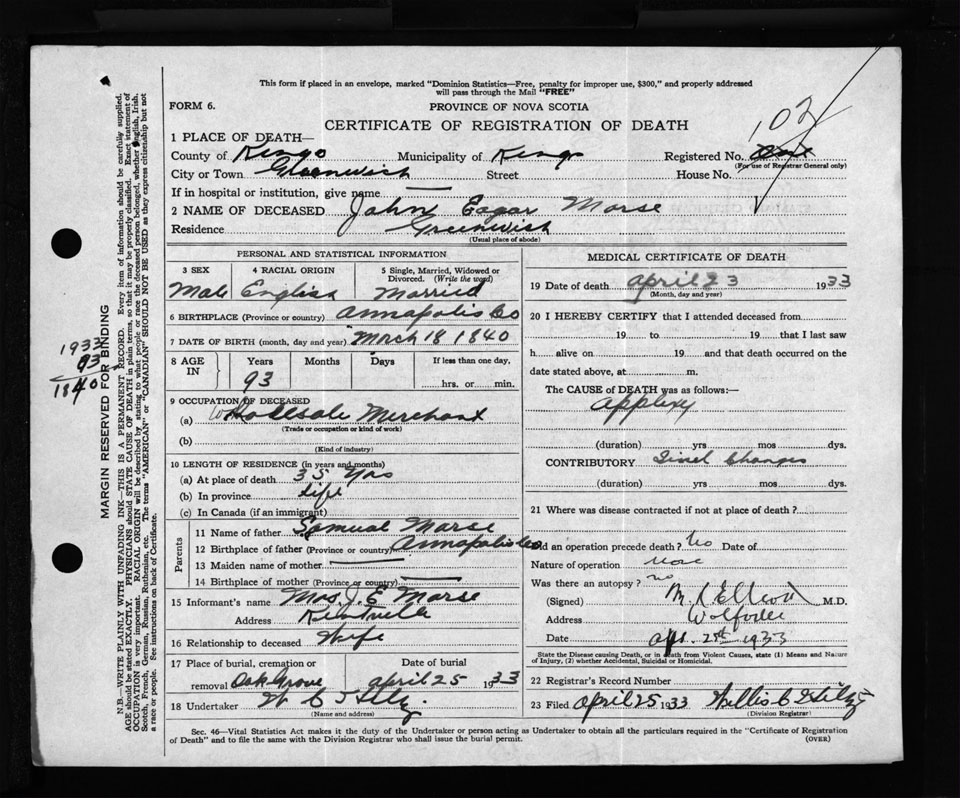 This form if placed in an envelope, marked "Dominion Statistics—Free, penalty for improper use, $300," and properly addressed
will pass through the Mail "FREE"
FORM 6.
PROVINCE OF NOVA SCOTIA
CERTIFICATE OF REGISTRATION OF DEATH
102
1 PLACE OF DEATH—
County of Kings Municipality of Kings Registered No.
(For use of Registrar General only)
City or Town Greenwich Street House No.
If in hospital or institution, give name —
2 NAME OF DECEASED John Eagar Morse
Residence Greenwich
(Usual place of abode)
PERSONAL AND STATISTICAL INFORMATION
3 SEX 4 RACIAL ORIGIN 5 Single, Married, Widowed or Divorced. (Write the word)
Male English Married
6 BIRTHPLACE (Province or country) Annapolis Co
7 DATE OF BIRTH (month, day and year) March 18 1840
8 AGE IN Years Months Days If less than one day,
93 hrs. or min.
9 OCCUPATION OF DECEASED
(a) Wholesale Merchant
(Trade or occupation or kind of work)
(b)
(Kind of industry)
10 LENGTH OF RESIDENCE (in years and months)
(a) At place of death 35 Yrs
(b) In province Life
(c) In Canada (if an immigrant)
Parents
11 Name of father Samuel Morse
12 Birthplace of father (Province or country) Annapolis Co
13 Maiden name of mother —
14 Birthplace of mother (Province or country) —
15 Informant's name Mrs. J. E. Morse
Address Kentville
16 Relationship to deceased Wife
17 Place of burial, cremation or removal Oak Grove Date of burial April 25 1933
18 Undertaker W C
(Name and address)
MEDICAL CERTIFICATE OF DEATH
19 Date of death April 23 1933
(Month, day and year)
20 I HEREBY CERTIFY that I attended deceased from
19 to 19 and that I last saw
h alive on 19 and that death occurred on the
date stated above, at m.
The CAUSE of DEATH was as follows:—
(duration) yrs mos dys.
CONTRIBUTORY Changes
(duration) yrs mos dys.
21 Where was disease contracted if not at place of death?
Did an operation precede death? No Date of
Nature of operation
Was there an autopsy? no
(Signed) M.D.
Address Wolfville
Date 1933
State the Disease causing Death, or in death from Violent Causes, state (1) Means and Nature
of Injury, (2) whether Accidental, Suicidal or Homicidal.
22 Registrar's Record Number
23 Filed April 25 1933 Willis C
(Division Registrar)
Sec. 46—Vital Statistics Act makes it the duty of the Undertaker or person acting as Undertaker to obtain all the particulars required in the "Certificate of Registration
of Death" and to file the same with the Division Registrar who shall issue the burial permit.
(OVER)
MARGIN RESERVED FOR BINDING
1933
93
1840
N.B.—WRITE PLAINLY WITH UNFADING INK—THIS IS A PERMANENT RECORD. Every item of information should be carefully supplied.
AGE should be stated EXACTLY. PHYSICIANS should STATE CAUSE OF DEATH in plain terms, so that it may be properly classified. Exact statement of
OCCUPATION is very important. RACIAL ORIGIN will be described by stating to what people or race the deceased person belonged, whether English, Irish,
Scotch, French, German, Russian, Ruthenian, etc. The terms "AMERICAN" or "CANADIAN" SHOULD NOT BE USED as they express citizenship but not
a race or people. See instructions on back of Certificate.